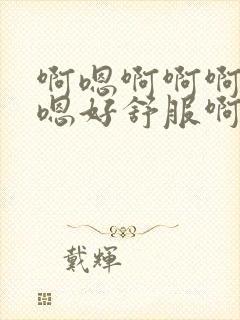 啊嗯啊啊啊
嗯好舒服啊
戴輝